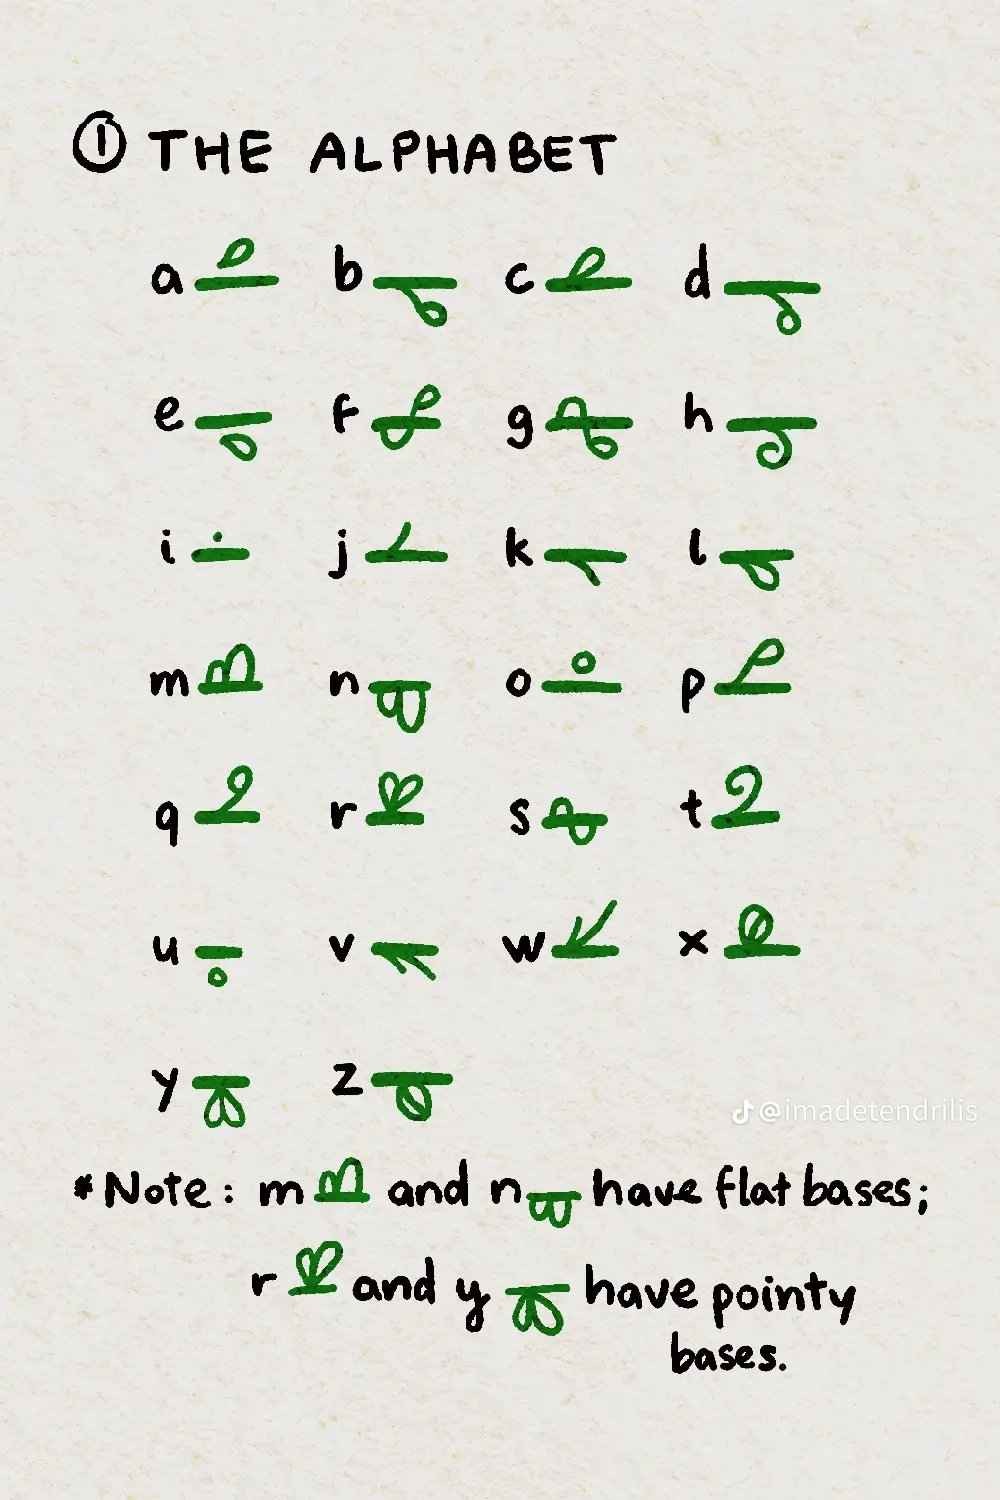 ① THE ALPHABET
a b c d
e f g h
i j k l
m n o p
q r s t
u v w x
y z
@imadetendrilis
* Note: m and n have flat bases;
r and y have pointy
bases.